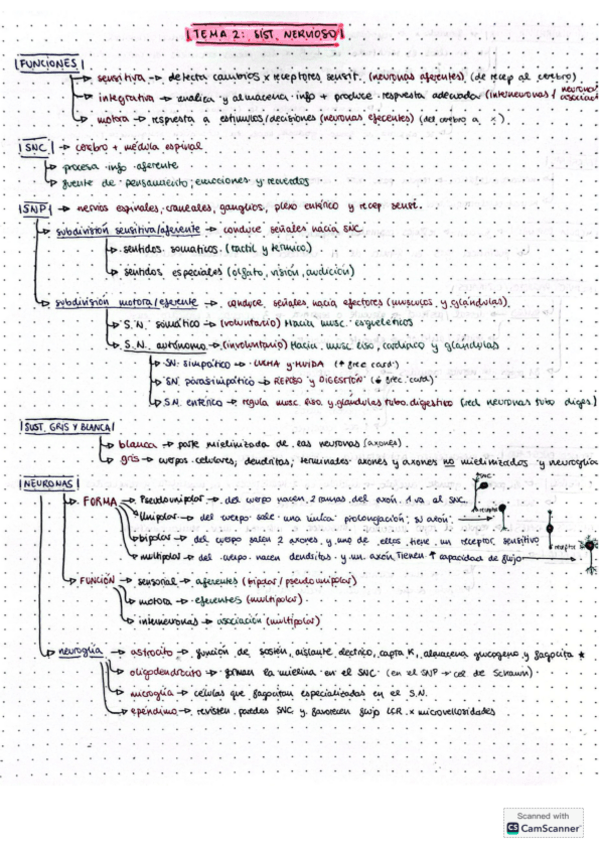 TEMA 2: SIST. NERVIOSO
FUNCIONES
sensitiva → detecta cambios x receptores sensit. (neuronas aferentes) (de recep al cerebro)
integrativa → analiza y almacena info + produce respuesta adecuada (interneuronas / neuronas asociac
motora → respuesta a estimulos/decisiones (neuronas eferentes) (del cerebro a x)
SNC → cerebro + médula espinal
procesa info aferente
fuente de pensamiento, emociones y recuerdos
SNP → nervios espinales, craneales, ganglios, plexo entérico y recep sensi.
subdivisión sensitiva/aferente → conduce señales hacia SNC
sentidos somaticos (tactil y termico)
sentidos especiales (olfato, visión, audición)
subdivisión motora/eferente → conduce señales hacia efectores (musculos y glándulas)
S.N. somático → (voluntario) Hacia musc. esqueléticos
S.N. autónomo → (involuntario) Hacia musc liso, cardíaco y glándulas
SN. simpático → LUCHA y HUIDA (↑ frec card.)
SN. parasimpático → REPOSO y DIGESTIÓN (↓ frec. card.)
S.N. entérico → regula musc liso y glándulas tubo digestivo (red neuronas tubo diges)
SUST. GRIS Y BLANCA
blanca → parte mielinizada de las neuronas (axones)
gris → cuerpos celulares, dendritas, terminales axones y axones no mielinizados y neuroglia
NEURONAS
FORMA → Pseudounipolar → del cuerpo nacen 2 ramas del axón. 1 va al SNC.
SNC
Unipolar → del cuerpo sale una única prolongación, su axón.
receptor
bipolar → del cuerpo salen 2 axones y uno de ellos tiene un receptor sensitivo
receptor
multipolar → del cuerpo nacen dendritas y un axón. Tienen ↑ capacidad de flujo
FUNCIÓN → sensorial → aferentes (bipolar / pseudounipolar)
motora → eferentes (multipolar)
interneuronas → asociación (multipolar)
neuroglia → astrocito → función de sostén, aislante eléctrico, capta K, almacena glucogeno y fagocita ★
oligodendrocito → forman la mielina en el SNC (en el SNP → cel de Schawn)
microglia → celulas que fagocitan especializadas en el S.N.
epéndimo → revisten paredes SNC y favorecen flujo LCR x microvellosidades
Scanned with
CS CamScanner